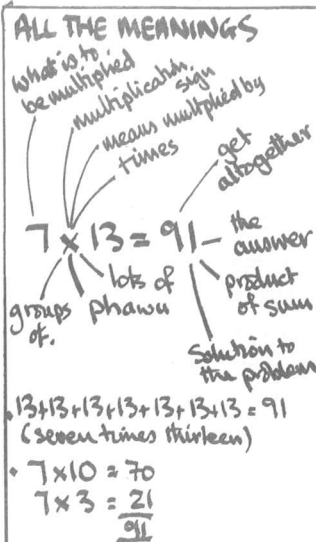 ALL THE MEANINGS
what is to
be multiplied
multiplication
sign
means multiplied by
times
get
altogether
7 x 13 = 91
the
answer
groups
of.
lots of
phawu
product
of sum
Solution to
the problem
.13+13+13+13+13+13+13 = 91
(seven times thirteen)
• 7 x 10 = 70
7 x 3 = 21
91